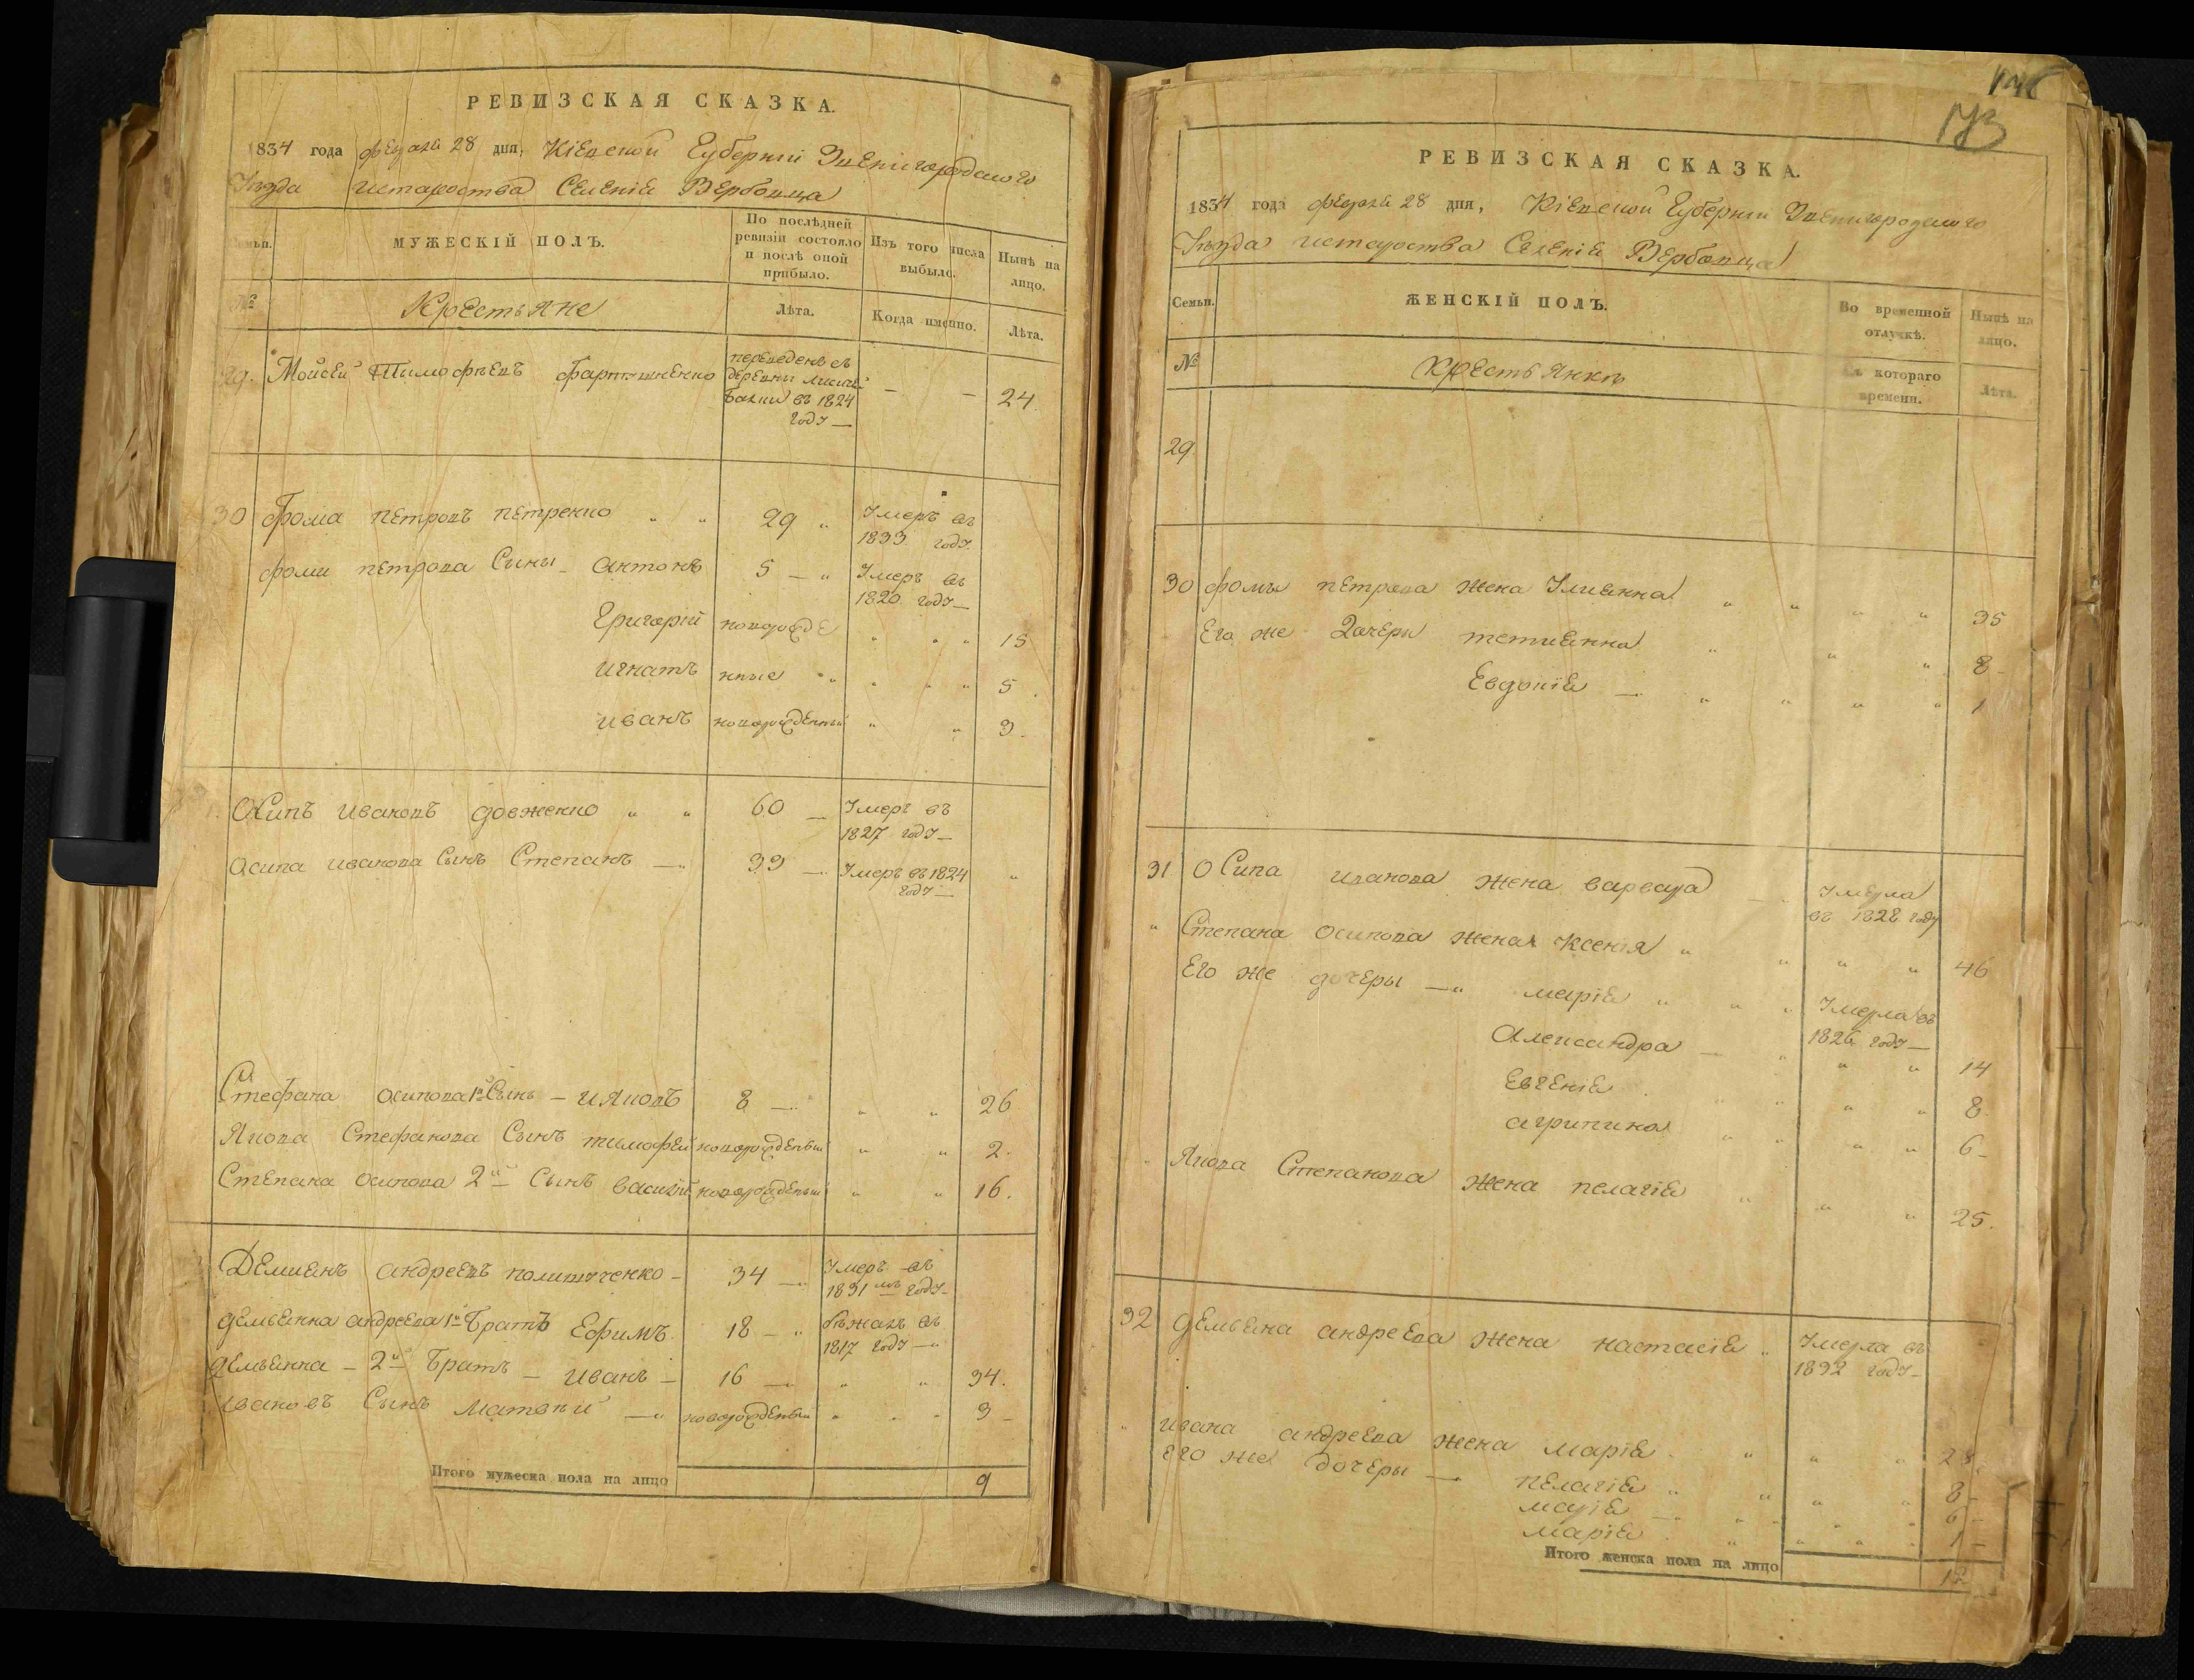 РЕВИЗСКАЯ СКАЗКА.
1834 года февраля 28 дня, Кіевской Губерніи Звенигородского
Уезда истароства Селенія Вербовца
Семьи.
МУЖЕСКІЙ ПОЛЪ.
По послѣдней ревизіи состояло и послѣ оной прибыло.
Изъ того числа выбыло.
Нынѣ на лицо.
№
Крестьяне
Лѣта.
Когда именно.
Лѣта.
29. Мойсей Тимофѣевъ переведенъ съ деревны балки въ 1824 году — — — 24.
30 Фома петровъ петренко " " 29 " Умеръ въ 1833 году.
фоми петрова Сыны – антонъ 5 — " Умеръ въ 1820 году —
Григорій новорожде " " " 15
игнатъ нные " " " " " 5.
иванъ новорожденный " " 3.
Осипъ ивановъ довженко " " 60 — Умеръ въ 1827 году —
Осипа иванова Сынъ Степанъ — " 33 — Умеръ въ 1824 году — "
Стефана осипова 1й Сынъ – ияковъ 8 — " " 26
Якова Стефанова Сынъ тимофей новорожденый " " 2.
Степана осипова 2й Сынъ василій новорожденый " " 16.
Демиянъ андреевъ полищученко – 34 — Умеръ въ 1831мъ году –
демьянна андреева 1й братъ Ефимъ 18 – " бѣжалъ въ 1817 году – "
демьянна – 2й братъ – иванъ – 16 — " " 34.
ивановъ Сынъ Матвѣй — " новорожденый " " " 3 –
Итого мужеска пола на лицо 9
173
РЕВИЗСКАЯ СКАЗКА.
1834 года февраля 28 дня, Кіевской Губерніи Звенигородского
Уезда истароства Селенія Вербовца
Семьи.
ЖЕНСКІЙ ПОЛЪ.
Во временной отлучкѣ.
Нынѣ на лицо.
№
Крестьянкѣ
Съ котораго времени.
Лѣта.
29.
30 фомы петрова жена Улиянна " " " " 35
Его же Дочери тетиянна " " " 8 –
Евдокія — " " " " 1
31 Осипа иванова жена варвара — " Умерла въ 1828 году
" Степана осипова жена Ксенія " " " " 46
Его же дочеры — " марія " " " Умерла въ 1826 году —
Александра — " " " 14
Евгенія . " " " " 8.
агрипина " " " " 6 –
" Якова Степанова жена пелагія " " " 25.
32 демьяна андреева жена настасія " Умерла въ 1832 году –
" ивана андреева жена марія . " " " 28.
его же дочеры — пелагія " " " " 8 –
марія — " " " " 6 –
марія . " " " " 1 –
Итого женска пола на лицо 12